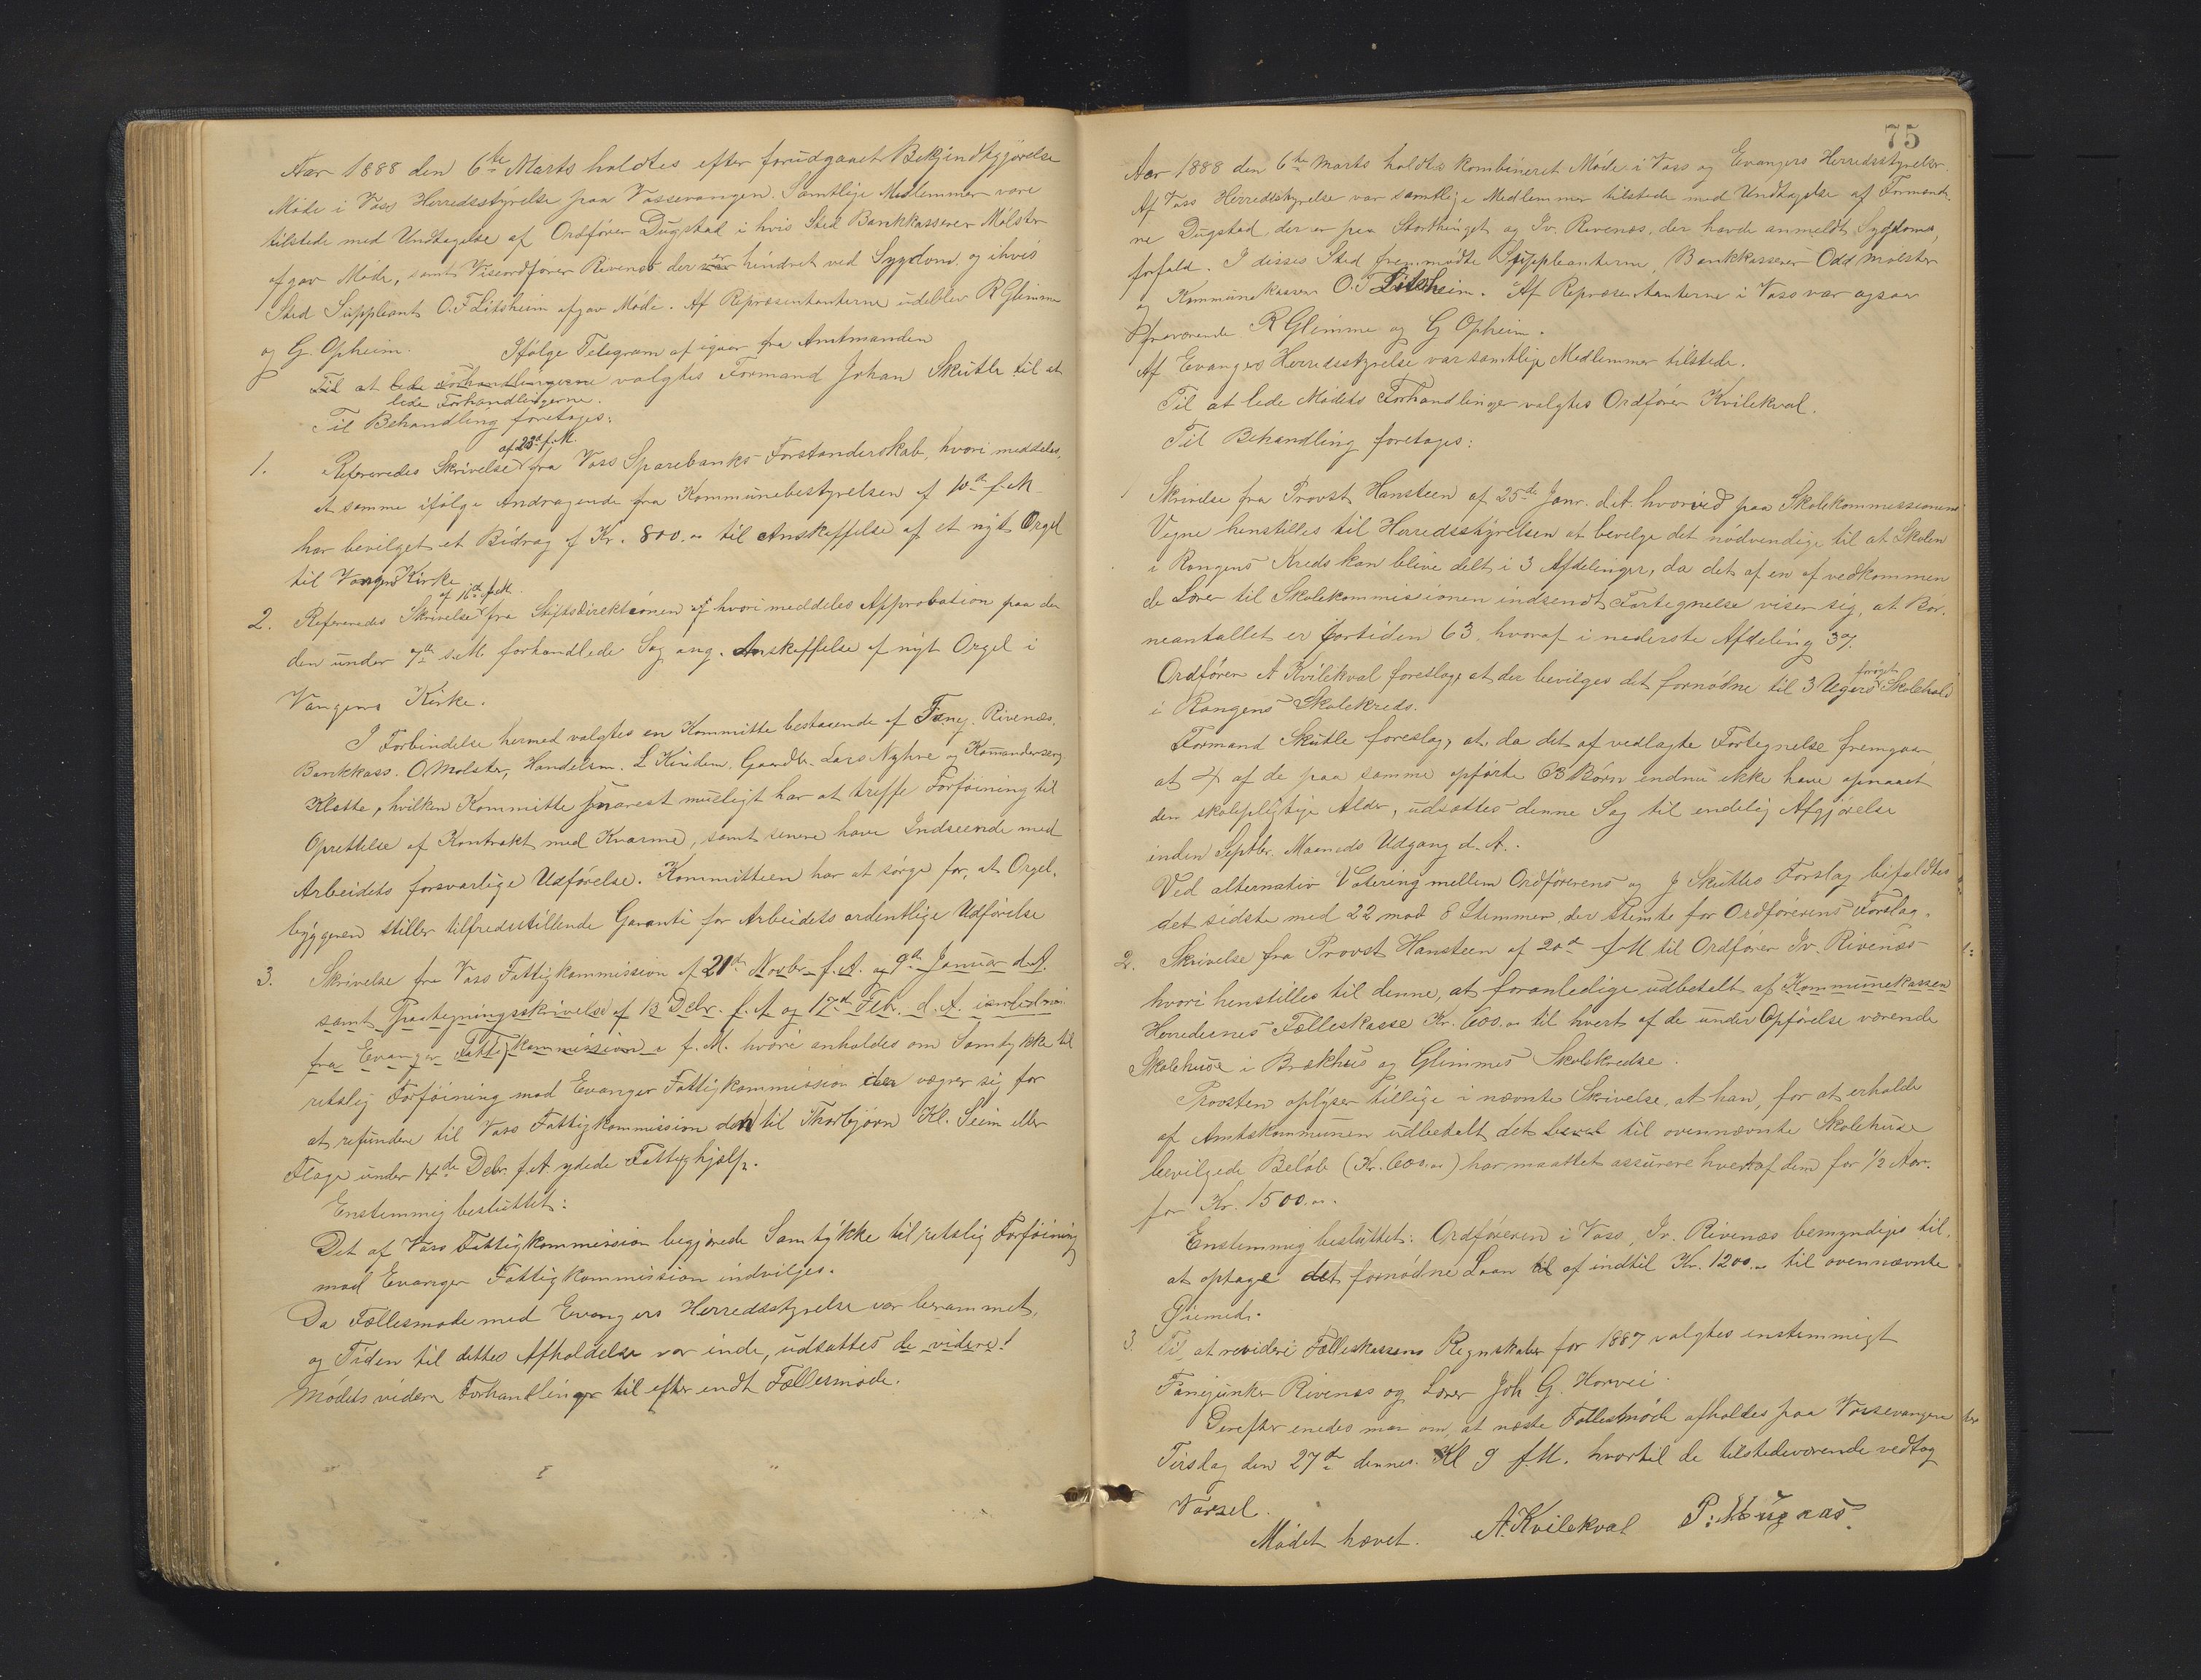 Aar 1888 den 6te Marts holdtes efter forudgaaet Bekjendtgjørelse
Møde i Voss Herredsstyrelse paa Vossevangen. Samtlige Medlemmer vare
tilstede med Undtagelse af Ordfører Dugstad i hvis Sted Bankkasserer Mølster
afgav Møde, samt Viseordfører Rivenæs der er hindret ved Sygdom og i hvis
Sted Suppleant O. F. Litsheim afgav Møde. Af Repræsentanterne udeblev R Glimme
og G. Opheim. Ifølge Telegram af igaar fra Amtmanden
Til at lede Forhandlingerne valgtes Formand Johan Skutle til at
lede Forhandlingerne.
Til Behandling foretoges:
af 23d f. M.
1. Refereredes Skrivelse fra Voss Sparebanks Forstanderskab, hvori meddeles,
at samme ifølge Andragende fra Kommunebestyrelsen af 10de f. M
har bevilget et Bidrag af Kr. 800.00 til Anskaffelse af et nyt Orgel
til Vangens Kirke
af 16de f. M.
2. Refereredes Skrivelse fra Stiftsdirektionen af hvori meddeles Approbation paa den
den under 7de s. M. forhandlede Sag ang. Anskaffelse af nyt Orgel i
Vangens Kirke.
I Forbindelse hermed valgtes en Kommitte bestaaende af Fanej. Rivenæs,
Bankkass. O Mølster, Handelsm. L Kindem, Gaardbr. Lars Nyhre og Kommanderserg
Klætte, hvilken Kommitte snarest muligt har at treffe Forføining til
Oprettelse af Kontrakt med Kvarme, samt senere have Indseende med
Arbeidets forsvarlige Udførelse. Kommitteen har at sørge for, at Orgel-
byggeren stiller tilfredsstillende Garanti for Arbeidets ordentlige Udførelse
3. Skrivelse fra Voss Fattigkommission af 21de Novbr. f. A. og 9de Januar d. A.
samt Paategningsskrivelse af 13 Debr. f. A og 17de Feb. d. A.
fra Evanger Fattigkommission f. M. hvori anholdes om Samtykke til
retslig Forføining mod Evanger Fattigkommission der vægrer sig for
at refundere til Voss Fattigkommission den til Thorbjørn Kl. Seim eller
Flage under 14de Debr. f. A. ydede Fattighjælp.
Enstemmig besluttet:
Det af Voss Fattigkommission begjærede Samtykke til retslig Forføining
mod Evanger Fattigkommission indvilges.
Da Fællesmøde med Evangers Herredsstyrelse var berammet,
og Tiden til dettes Afholdelse var inde, udsattes de videre
Mødets videre Forhandlinger til efter endt Fællesmøde.
75
Aar 1888 den 6te Marts holdtes kombineret Møde i Voss og Evangers Herredsstyrelser.
Af Voss Herredsstyrelse var samtlige Medlemmer tilstede med Undtagelse af Formænde-
ne Dugstad, der er paa Storthinget og Iv. Rivenæs, der havde anmeldt Sygdoms,
forfald. I disses Sted fremmødte Suppleanterne, Bankkasserer Odd Mølster
og Kommunekasserer O. F Litsheim. Af Repræsentanterne i Voss var ogsaa
fraværende R Glimme og G Opheim.
Af Evangers Herredsstyrelse var samtlige Medlemmer tilstede.
Til at lede Mødets Forhandlinger valgtes Ordfører Kvilekval.
Til Behandling foretoges:
1 Skrivelse fra Provst Hansteen af 25de Janr. d. A. hvorved paa Skolekommissionens
Vegne henstilles til Herredsstyrelsen at bevilge det nødvendige til at Skolen
i Rongens Kreds kan blive delt i 3 Afdelinger, da det af en af vedkommen
de Lærer til Skolekommissionen indsendt Fortegnelse viser sig, at Bør-
neantallet er fortiden 63, hvoraf i nederste Afdeling 37.
Ordfører A Kvilekval foreslog at der bevilges det fornødne til 3 Ugers forøget Skolehold
i Rongens Skolekreds.
Formand Skutle foreslog, at da det af vedlagte Fortegnelse fremgaar
at 4 af de paa samme opførte 63 Børn endnu ikke have opnaaet
den skolepligtige Alder, udsættes denne Sag til endelig Afgjørelse
inden Septbr. Maaneds Udgang d. A.
Ved alternativ Votering mellem Ordførerens og J Skutles Forslag bifaldtes
det sidste med 22 mod 8 Stemmer, der stemte for Ordførerens Forslag.
2. Skrivelse fra Provst Hansteen af 20de f M til Ordfører Iv. Rivenæs
hvori henstilles til denne, at foranledige udbetalt af Kommunekassen
Herredernes Fælleskasse Kr. 600.00 til hvert af de under Opførelse værende
Skolehuse i Brækhus og Glimmes Skolekredse.
Provsten oplyser tillige i nævnte Skrivelse, at han, for at erholde
af Amtskommunen udbetalt det til ovennævnte Skolehuse
bevilgede Beløb (Kr. 600.00) har maattet assurere hvert af dem for 1/2 Aar.
for Kr. 1500.00.
Enstemmig besluttet: Ordføreren i Voss, Iv. Rivenæs bemyndiges til,
at optage det fornødne Laan til af indtil Kr. 1200.00 til ovennævnte
Øiemed.
3. Til at revidere Fælleskassens Regnskaber for 1887 valgtes enstemmigt
Fanejunker Rivenæs og Lærer Joh. G. Horvei.
Derefter enedes man om, at næste Fællesmøde afholdes paa Vossevangen
Tirsdag den 27de dennes Kl 9 f. M. hvortil de tilstedeværende vedtog
Varsel.
Mødet hævet. A. Kvilekval